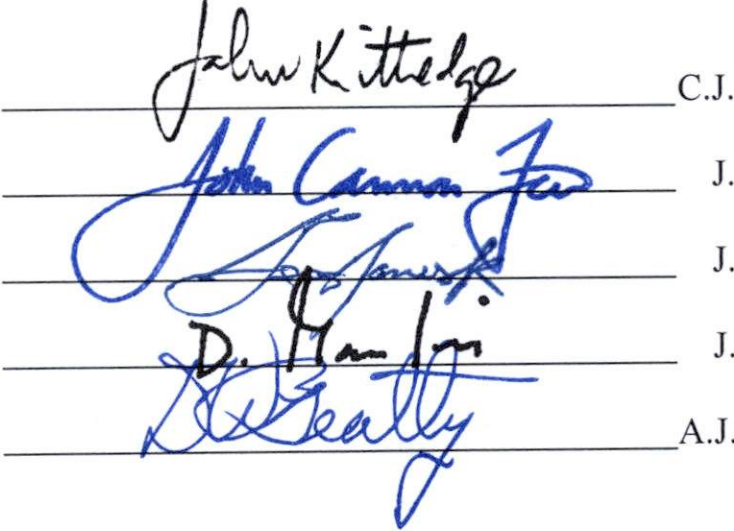 John Kittredge C.J.
John Cannon Few J.
J.
D. J.
Beatty A.J.